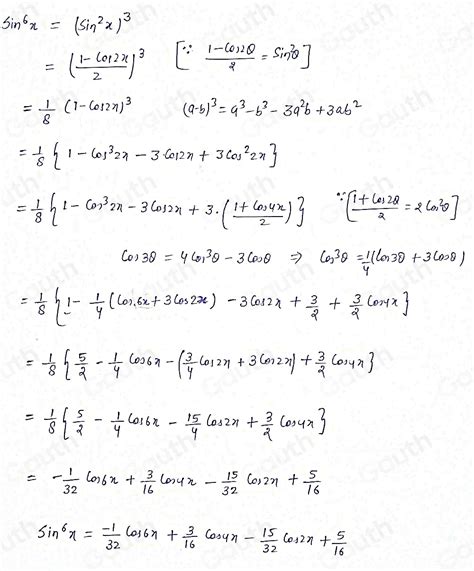 Sin⁶x = (Sin²x)³
= ((1-Cos2x)/2)³ [∵ (1-Cos2θ)/2 = Sin²θ]
= 1/8 (1-Cos2x)³ (a-b)³ = a³-b³-3a²b+3ab²
= 1/8 {1-Cos³2x-3Cos2x+3Cos²2x}
= 1/8 {1-Cos³2x-3Cos2x+3.((1+Cos4x)/2)} ∵[(1+Cos2θ)/2 = 2Cos²θ]
Cos3θ = 4Cos³θ-3Cosθ ⇒ Cos³θ = 1/4(Cos3θ+3Cosθ)
= 1/8 {1-1/4(Cos6x+3Cos2x)-3Cos2x+3/2+3/2Cos4x}
= 1/8 {5/2-1/4Cos6x-(3/4Cos2x+3Cos2x)+3/2Cos4x}
= 1/8 {5/2-1/4Cos6x-15/4Cos2x+3/2Cos4x}
= -1/32Cos6x+3/16Cos4x-15/32Cos2x+5/16
Sin⁶x = -1/32Cos6x+3/16Cos4x-15/32Cos2x+5/16